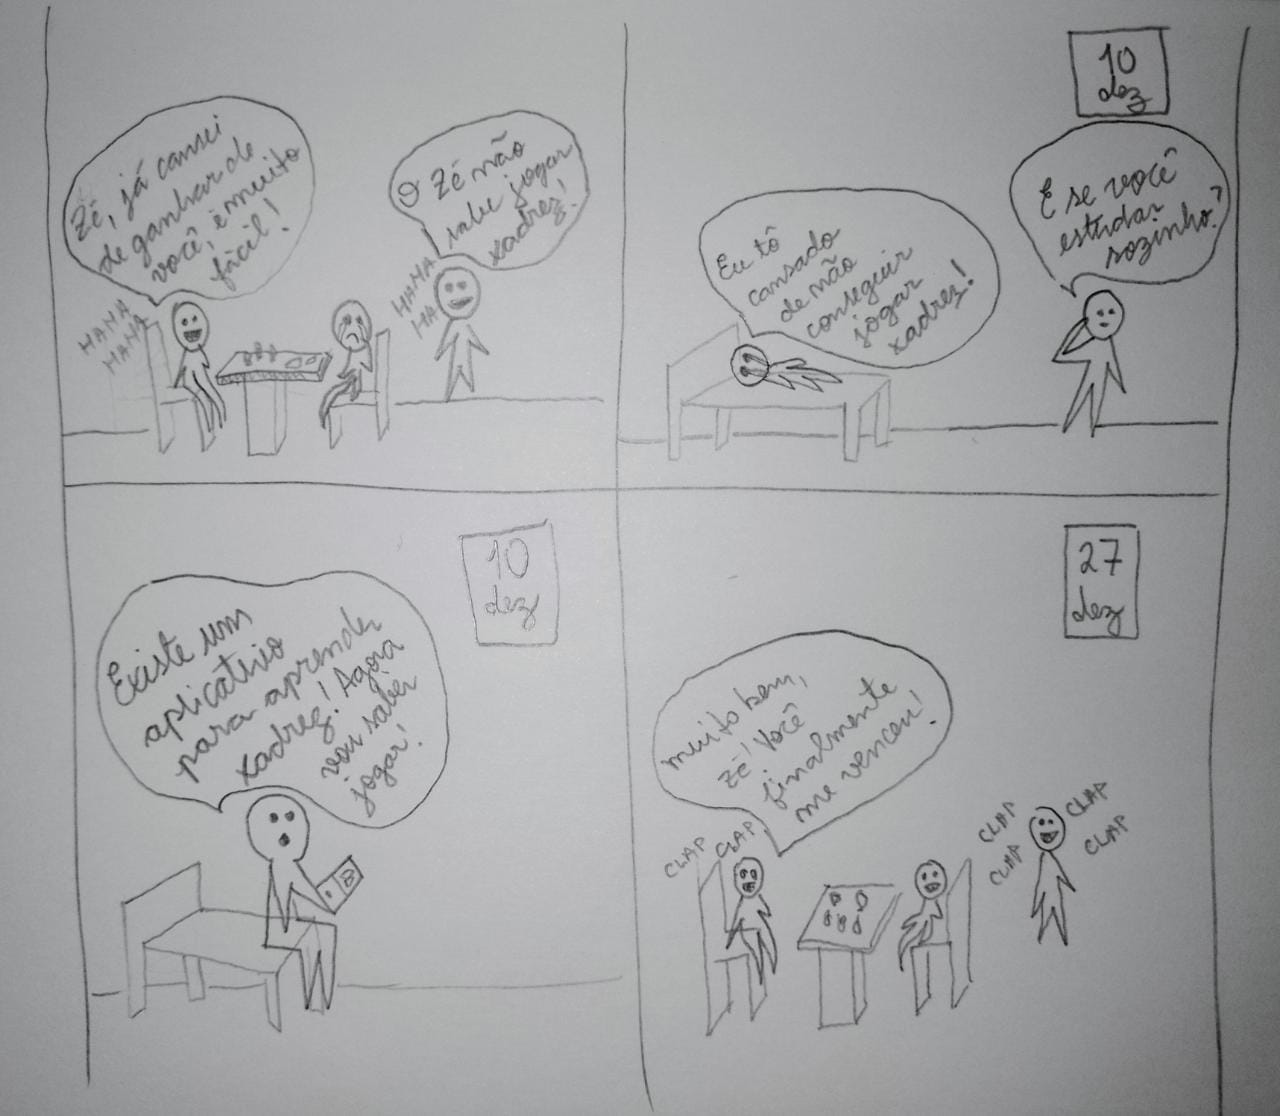 Zé, já cansei
de ganhar de
você, é muito
fácil!
HAHA
HAHA
O Zé não
sabe jogar
xadrez!
HAHA
HA
10
dez
Eu tô
cansado
de não
conseguir
jogar
xadrez!
E se você
estudar
sozinho?
10
dez
Existe um
aplicativo
para aprender
xadrez! Agora
vou saber
jogar!
27
dez
muito bem,
Zé! Você
finalmente
me venceu!
CLAP CLAP
CLAP CLAP
CLAP CLAP